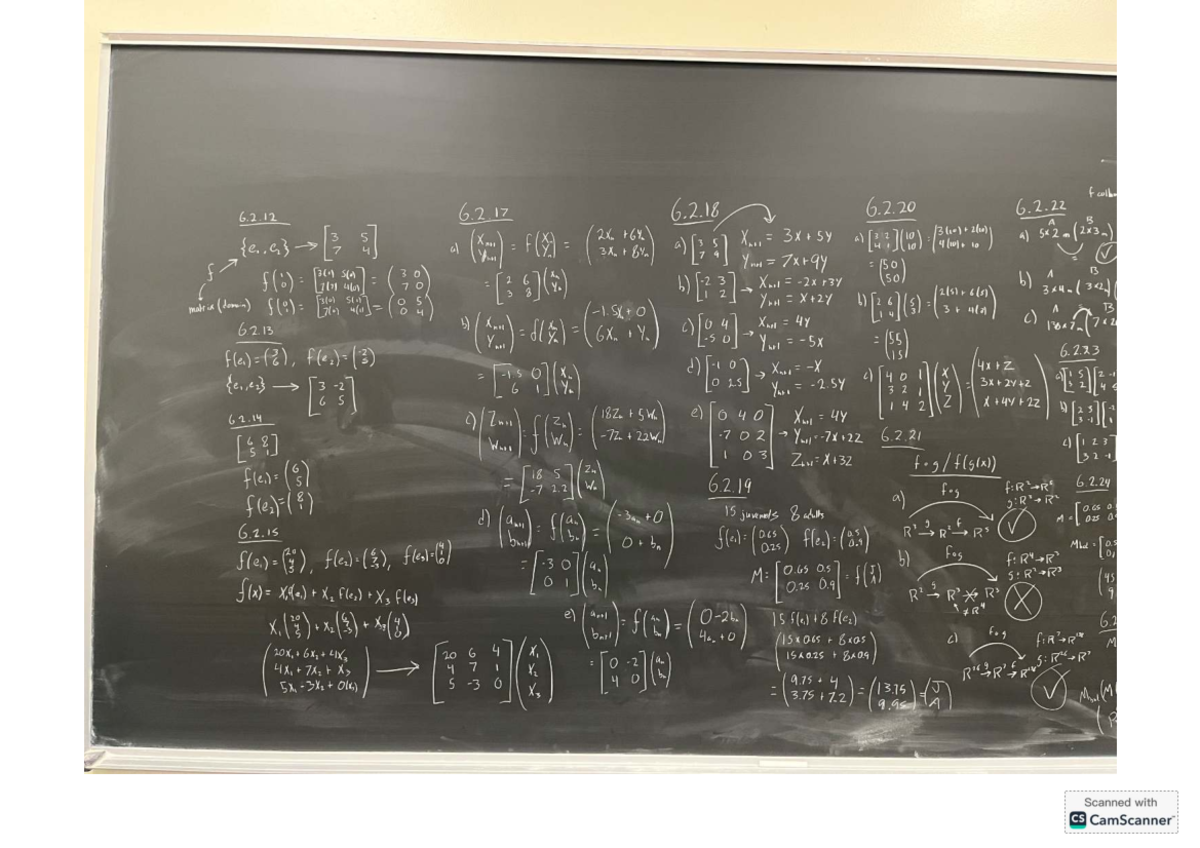 6.2.12
{e₁, e₂} → [3 5
7 4]
f
matrix (domain)
f(1 0) = [3(1) 5(0)
7(1) 4(0)] = (3 0
7 0)
f(0 1) = [3(0) 5(1)
7(0) 4(1)] = (0 5
0 4)
6.2.13
f(e₁) = (3 6), f(e₂) = (-2 5)
{e₁, e₂} → [3 -2
6 5]
6.2.14
[6 8
5 1]
f(e₁) = (6 5)
f(e₂) = (8 1)
6.2.15
f(e₁) = (20 4 5), f(e₂) = (6 7 -3), f(e₃) = (4 1 0)
f(x) = X₁f(e₁) + X₂ f(e₂) + X₃ f(e₃)
X₁(20 4 5) + X₂(6 7 -3) + X₃(4 1 0)
(20X₁ + 6X₂ + 4X₃
4X₁ + 7X₂ + X₃
5X₁ - 3X₂ + 0(X₃)) → [20 6 4
4 7 1
5 -3 0] (X₁ X₂ X₃)
6.2.17
a) (Xₙ₊₁ Yₙ₊₁) = f(Xₙ Yₙ) = (2Xₙ + 6Yₙ
3Xₙ + 8Yₙ)
= [2 6
3 8] (Xₙ Yₙ)
b) (Xₙ₊₁ Yₙ₊₁) = f(Xₙ Yₙ) = (-1.5Xₙ + 0
6Xₙ + Yₙ)
= [-1.5 0
6 1] (Xₙ Yₙ)
c) (Zₙ₊₁ Wₙ₊₁) = f(Zₙ Wₙ) = (18Zₙ + 5Wₙ
-7Zₙ + 22Wₙ)
= [18 5
-7 2.2] (Zₙ Wₙ)
d) (aₙ₊₁ bₙ₊₁) = f(aₙ bₙ) = (-3aₙ + 0
0 + bₙ)
= [-3 0
0 1] (aₙ bₙ)
e) (aₙ₊₁ bₙ₊₁) = f(aₙ bₙ) = (0 - 2bₙ
4aₙ + 0)
= [0 -2
4 0] (aₙ bₙ)
6.2.18
a) [3 5
7 9] Xₙ₊₁ = 3X + 5Y
Yₙ₊₁ = 7X + 9Y
b) [-2 3
1 2] → Xₙ₊₁ = -2X + 3Y
Yₙ₊₁ = X + 2Y
c) [0 4
-5 0] → Xₙ₊₁ = 4Y
Yₙ₊₁ = -5X
d) [-1 0
0 2.5] → Xₙ₊₁ = -X
Yₙ₊₁ = -2.5Y
e) [0 4 0
-7 0 2
1 0 3] → Xₙ₊₁ = 4Y
Yₙ₊₁ = -7X + 2Z
Zₙ₊₁ = X + 3Z
6.2.19
15 juvenils 8 adults
f(e₁) = (0.65 0.25) f(e₂) = (0.5 0.9)
M = [0.65 0.5
0.25 0.9] = f(J A)
15 f(e₁) + 8 f(e₂)
(15×0.65 + 8×0.5
15×0.25 + 8×0.9)
= (9.75 + 4
3.75 + 7.2) = (13.75
9.95) = (J A)
6.2.20
a) [3 2
4 1] (10 10) = (3(10) + 2(10)
4(10) + 10)
= (50
50)
b) [2 6
1 4] (5 3) = (2(5) + 6(5)
= (55
15)
c) [4 0 1
3 2 1
1 4 2] (X Y Z) = (4X + Z
3X + 2Y + Z
X + 4Y + 2Z)
6.2.21
f∘g / f(g(x))
a) f∘g
R³ → R² → R³
g: R³ → R²
b) f∘g
f: R⁴ → R³
g: R² → R³
R² → R³ → R³
c) f∘g
6.2.22
a) A B
5×2
2×3
b) A B
3×4
3×2
c) A B
6.2.23
a)
b)
c) [1 2 3
6.2.24
M = [0.65
0.25
Scanned with
CS CamScanner